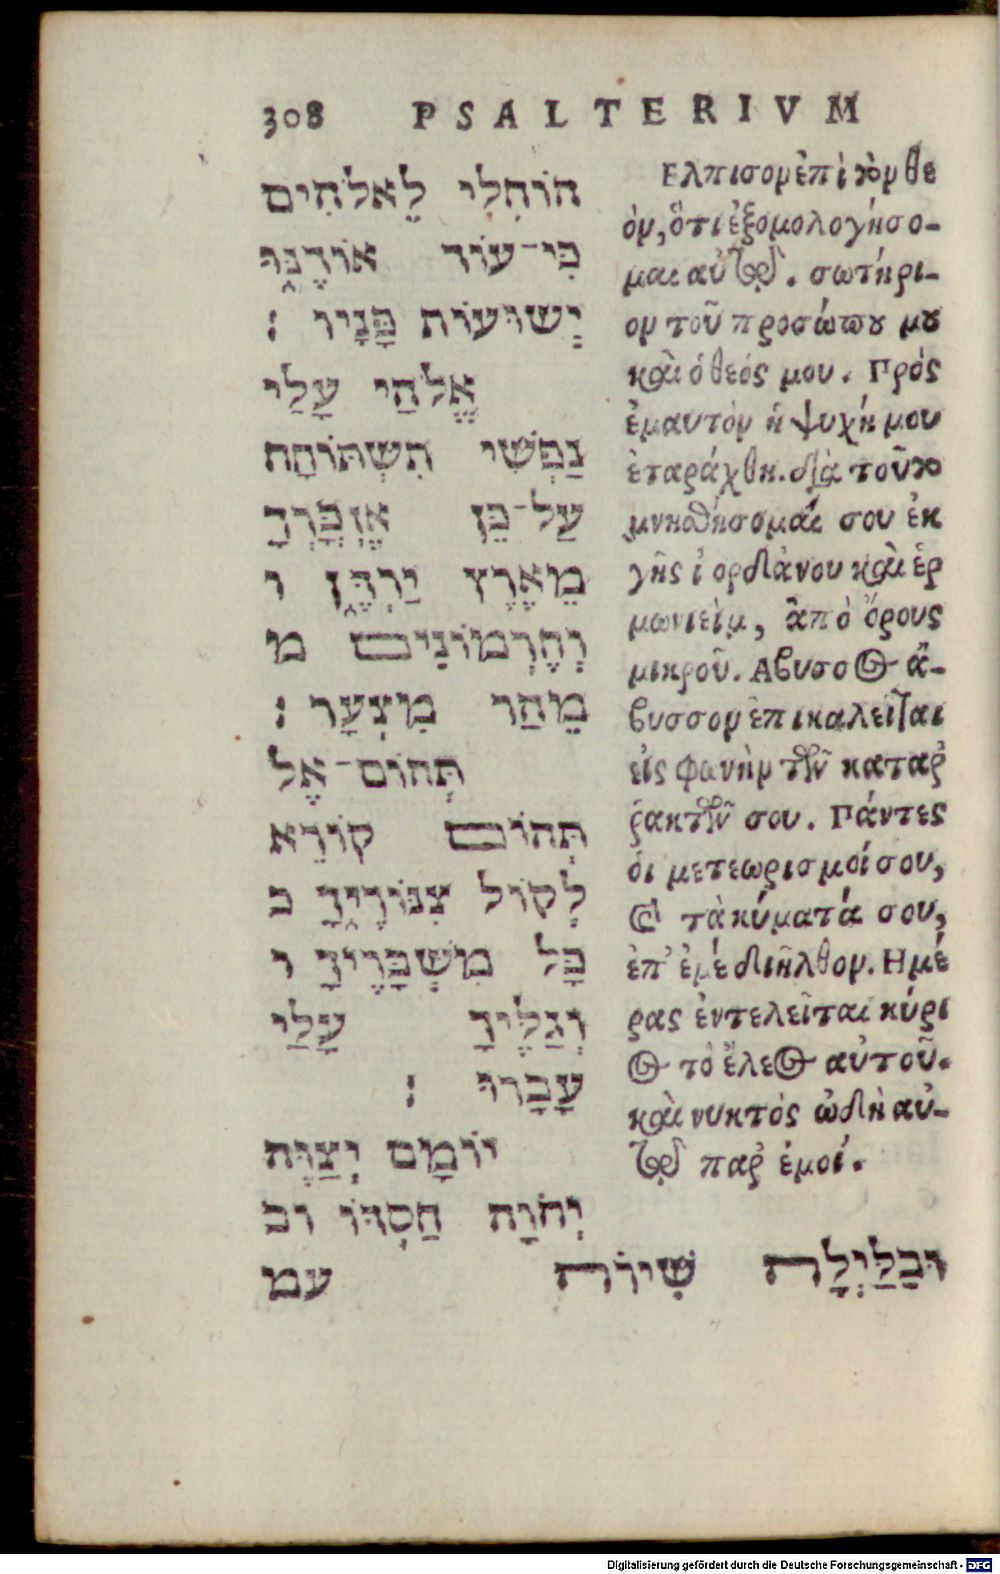 308 PSALTERIVM
הוֹחִלִי לֵאלֹהִים
כִּי־עוֹד אוֹדֶנּוּ
יְשׁוּעוֹת פָּנָיו :
אֱלֹהַי עָלַי
נַפְשִׁי תִשְׁתּוֹחָח
עַל־כֵּן אֶזְכָּרְךָ
מֵאֶרֶץ יַרְדֵּן ו
וְחֶרְמוֹנִים מ
מֵהַר מִצְעָר :
תְּהוֹם־אֶל
תְּהוֹם קוֹרֵא
לְקוֹל צִנּוֹרֶיךָ כ
כָּל מִשְׁבָּרֶיךָ ו
וְגַלֶּיךָ עָלַי
עָבָרוּ :
יוֹמָם יְצַוֶּה
יְהֹוָה חַסְדּוֹ וב
וּבַלַּיְלָה שִׁירֹה עמ
Ελπισον ἐπὶ τὸν θε
όν, ὅτι ἐξομολογήσο-
μαι αὐτῷ. σωτήρι-
ον τοῦ προσώπου μου
καὶ ὁ θεός μου. Πρὸς
ἐμαυτὸν ἡ ψυχή μου
ἐταράχθη. διὰ τοῦτο
μνησθήσομαί σου ἐκ
γῆς ἰορδάνου καὶ ἑρ
μωνιεὶμ, ἀπὸ ὄρους
μικροῦ. Αβυσος ἄ-
βυσσον ἐπικαλεῖται
εἰς φωνὴν τῶν καταρ
ῥακτῶν σου. Πάντες
οἱ μετεωρισμοί σου,
καὶ τὰ κύματά σου,
ἐπ' ἐμὲ διῆλθον. Ημέ
ρας ἐντελεῖται κύρι
ος τὸ ἔλεος αὐτοῦ.
καὶ νυκτὸς ᾠδὴ αὐ-
τῷ παρ ἐμοί.
Digitalisierung gefördert durch die Deutsche Forschungsgemeinschaft - DFG